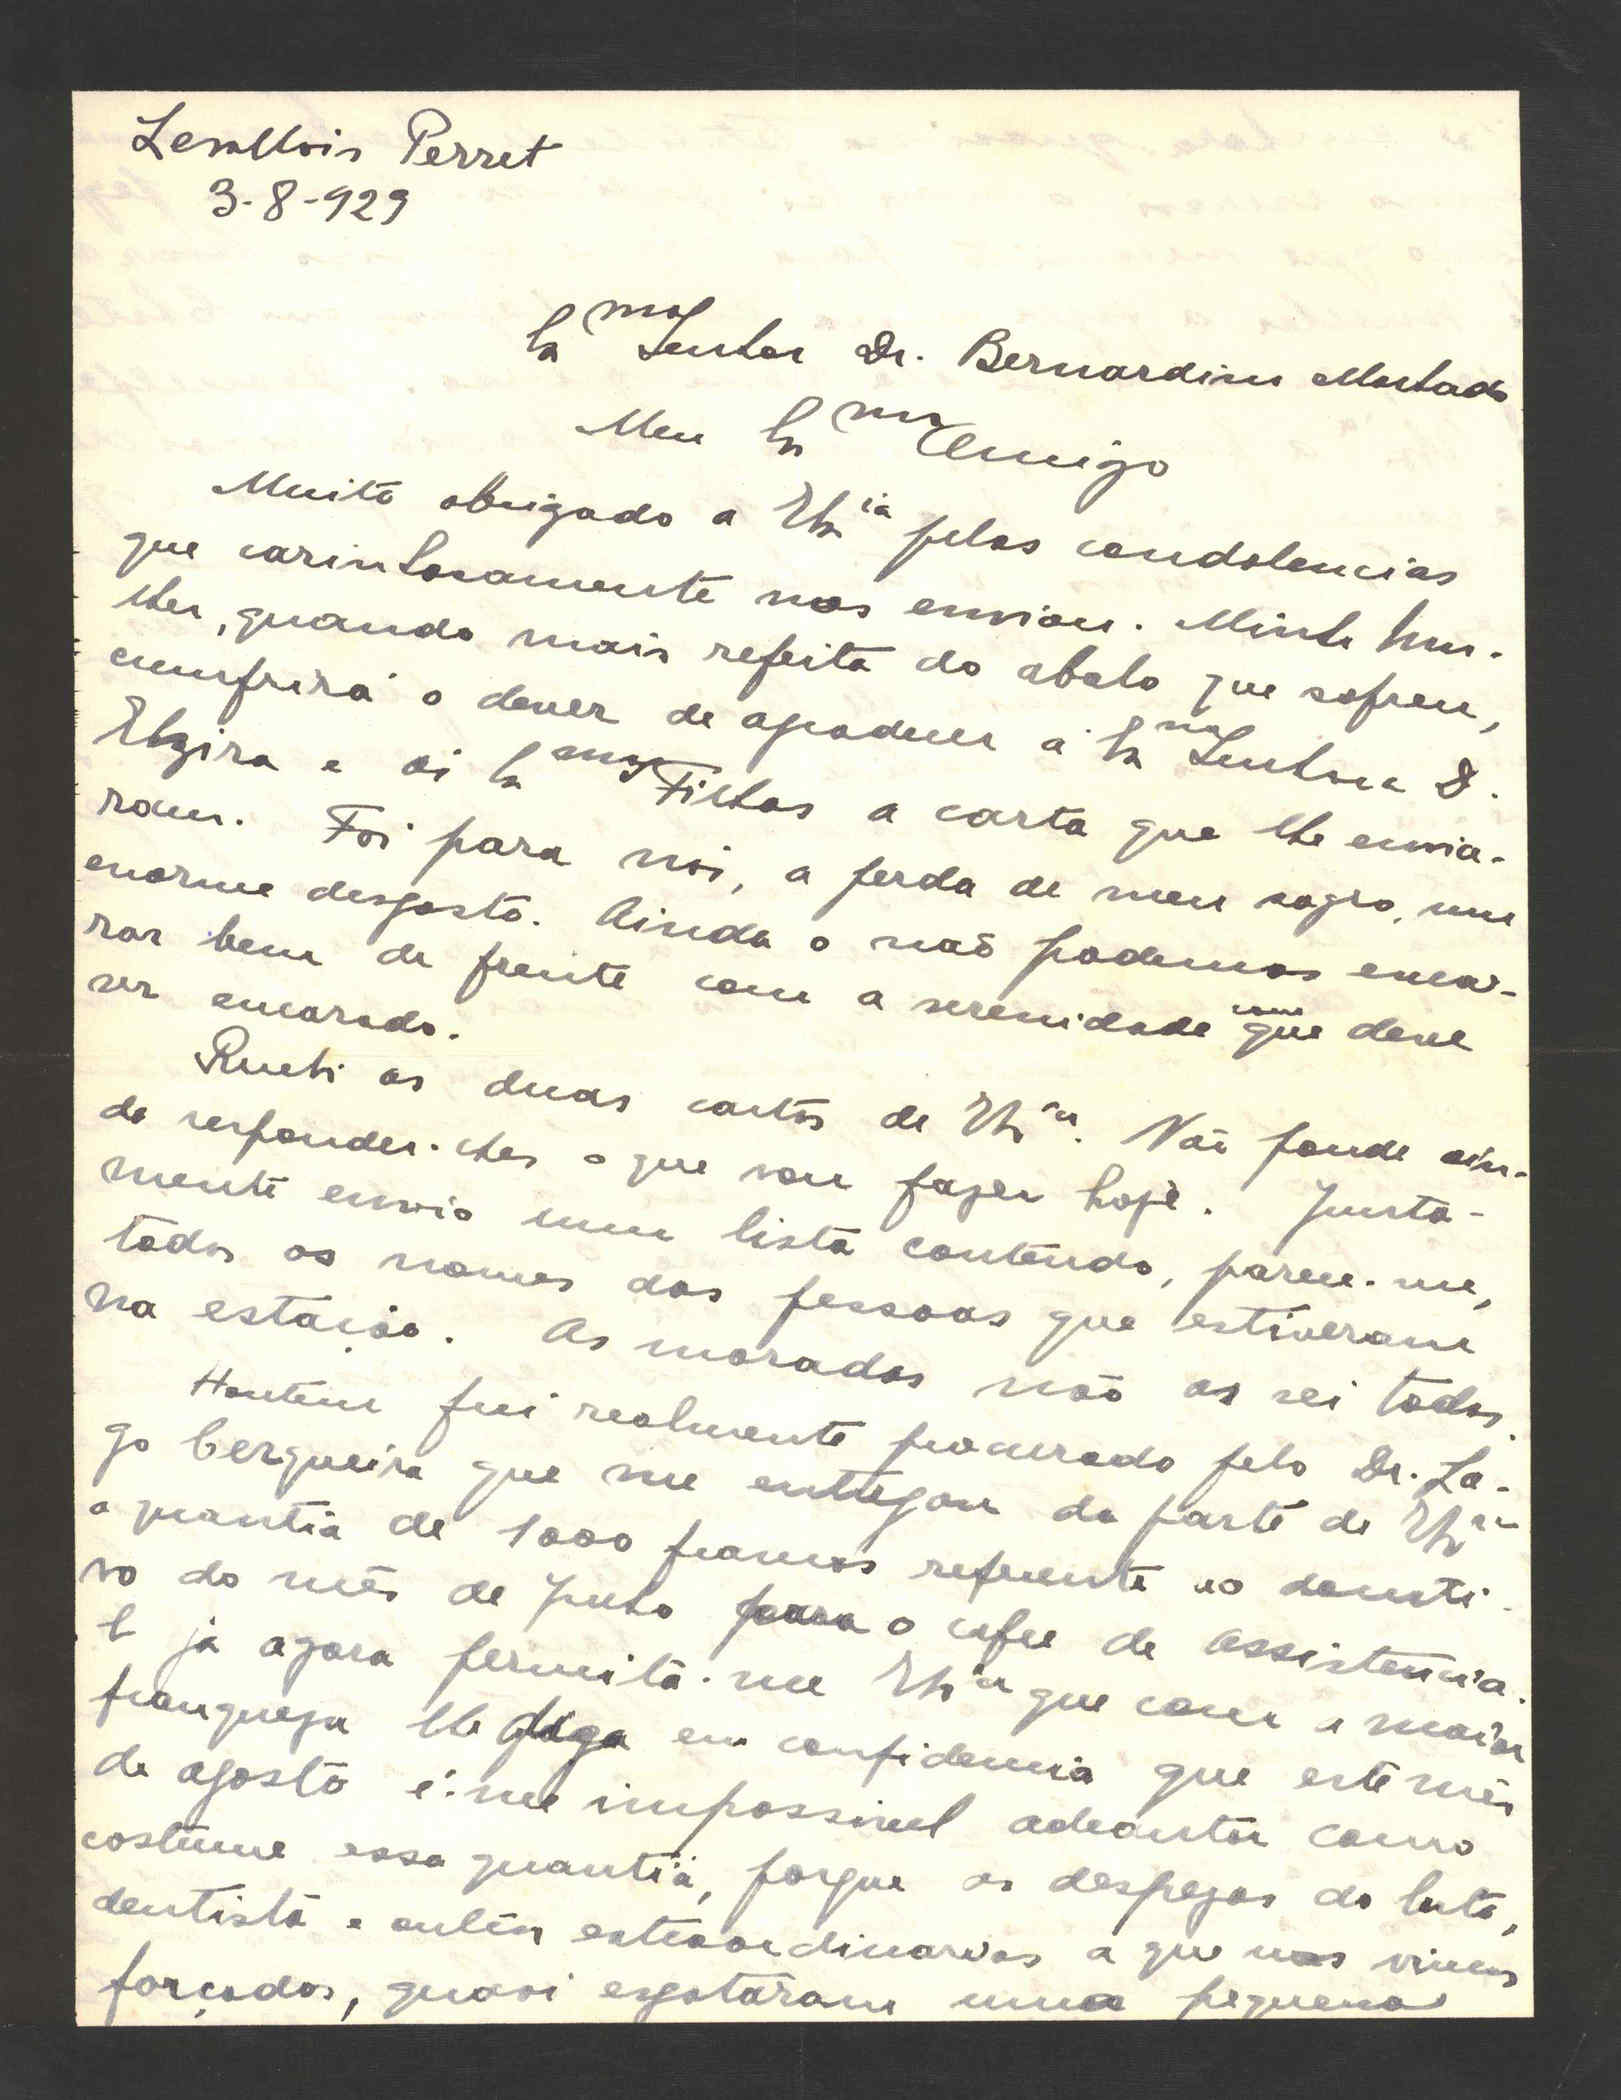 Levallois Perret
3-8-929
Ex.mo Senhor Dr. Bernardino Machado
Meu Ex.mo Amigo
Muito obrigado a V. Ex.cia pelas condolencias
que carinhosamente nos enviou. Minha mu-
lher, quando mais refeita do abalo que sofreu,
cumprirá o dever de agradecer á Ex.ma Senhora D.
Elzira e ás Ex.mas Filhas a carta que lhe envia-
ram. Foi para nós, a perda de meu sogro, um
enorme desgosto. Ainda o não podemos enca-
rar bem de frente com a serenidade com que deve
ser encarado.
Recebi as duas cartas de V. Ex.cia. Não poude ain-
da responder-lhes o que vou fazer hoje. Junta-
mente envio uma lista contendo, parece-me,
todos os nomes das pessoas que estiveram
na estação. As moradas não as sei todas.
Hontem fui realmente procurado pelo Dr. La-
go Cerqueira que me entregou da parte de V. Ex.cia
a quantia de 1000 francos referente ao donati-
vo do mês de Julho para o cofre de Assistencia.
E já agora permita-me V. Ex.cia que com a maior
franqueza lhe diga em confidencia que este mês
de agosto é-me impossivel adeantar como
costume essa quantia, porque as despezas do luto,
dentista e outras extraordinarias a que nos vimos
forçados, quasi esgotaram uma pequena